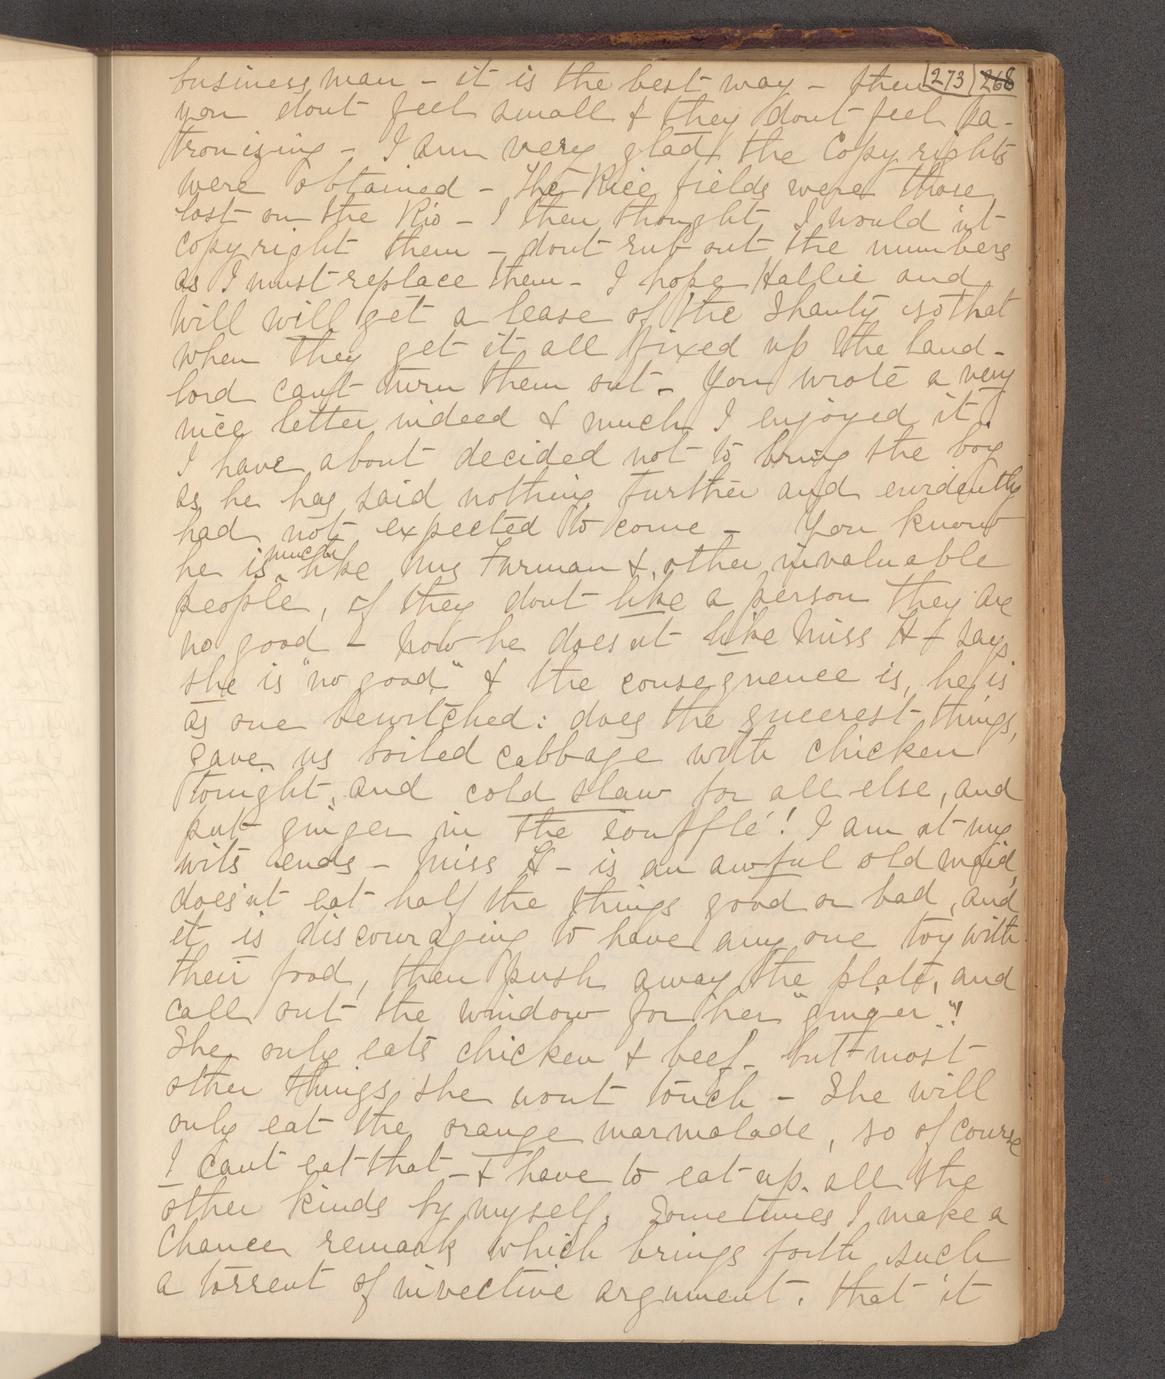 273 268
business man - it is the best way - then
you dont feel small & they dont feel pa-
tronizing - I am very glad the Copyrights
were obtained - The Rice fields were those
lost on the Rio - I then thought I would n't
copyright them - dont rub out the numbers
as I must replace them - I hope Hallie and
Will will get a lease of the Shanty so that
when they get it all fixed up the land-
lord can't turn them out - You wrote a very
nice letter indeed & much I enjoyed it!
I have about decided not to bring the boy
as he has said nothing further and evidently
had not expected to come - You know
he is much like Mrs Furman & other invaluable
people, if they dont like a person they are
no good - now he does nt like Miss H & says
she is "no good" & the consequence is, he is
as one bewitched: does the queerest things,
gave us boiled cabbage with chicken
tonight, and cold slaw for all else, and
put ginger in the soufflé! I am at my
wits ends - Miss H - is an awful old maid,
does'nt eat half the things good or bad, and
it is discouraging to have any one toy with
their food, then push away the plate, and
call out the window for her "ginger"!
She only eats chicken & beef - but most
other things she wont touch - She will
only eat the orange marmalade, so of course
I cant eat that - & have to eat up all the
other kinds by myself. Sometimes I make a
chance remark which brings forth such
a torrent of invective argument, that it